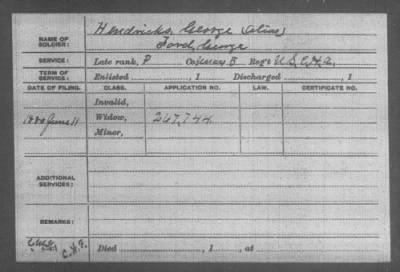 NAME OF SOLDIER: Hendricks, George (alias)
Ford, George
SERVICE: Late rank, P Co. B Reg't U.S.C.H.A.
TERM OF SERVICE: Enlisted , 1 Discharged , 1
DATE OF FILING. CLASS. APPLICATION NO. LAW. CERTIFICATE NO.
Invalid,
1880 June 11 Widow, 267,744
Minor,
ADDITIONAL SERVICES:
REMARKS:
C.H.F. Died , 1 , at